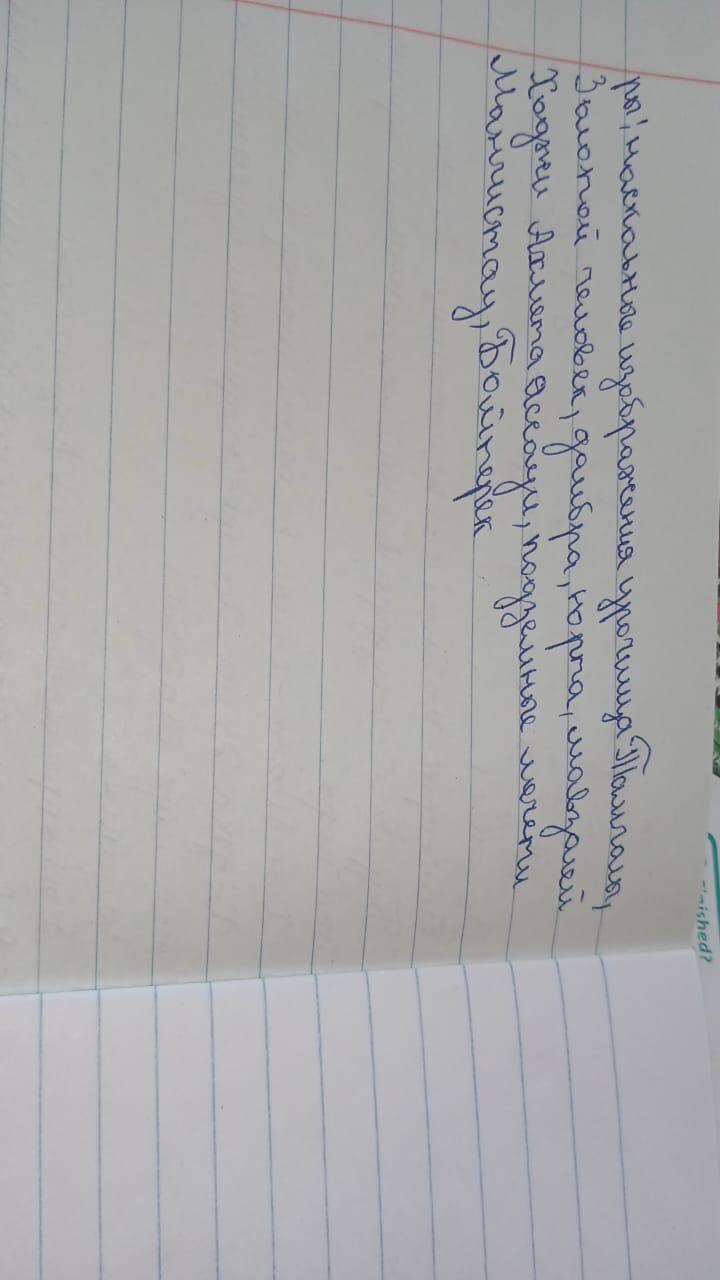 ры, наскальные изображения урочища Тамгалы,
Золотой человек, домбра, юрта, мавзолей
Ходжи Ахмета Яссауи, подземные мечети
Мангистау, Бойтерек
inished?